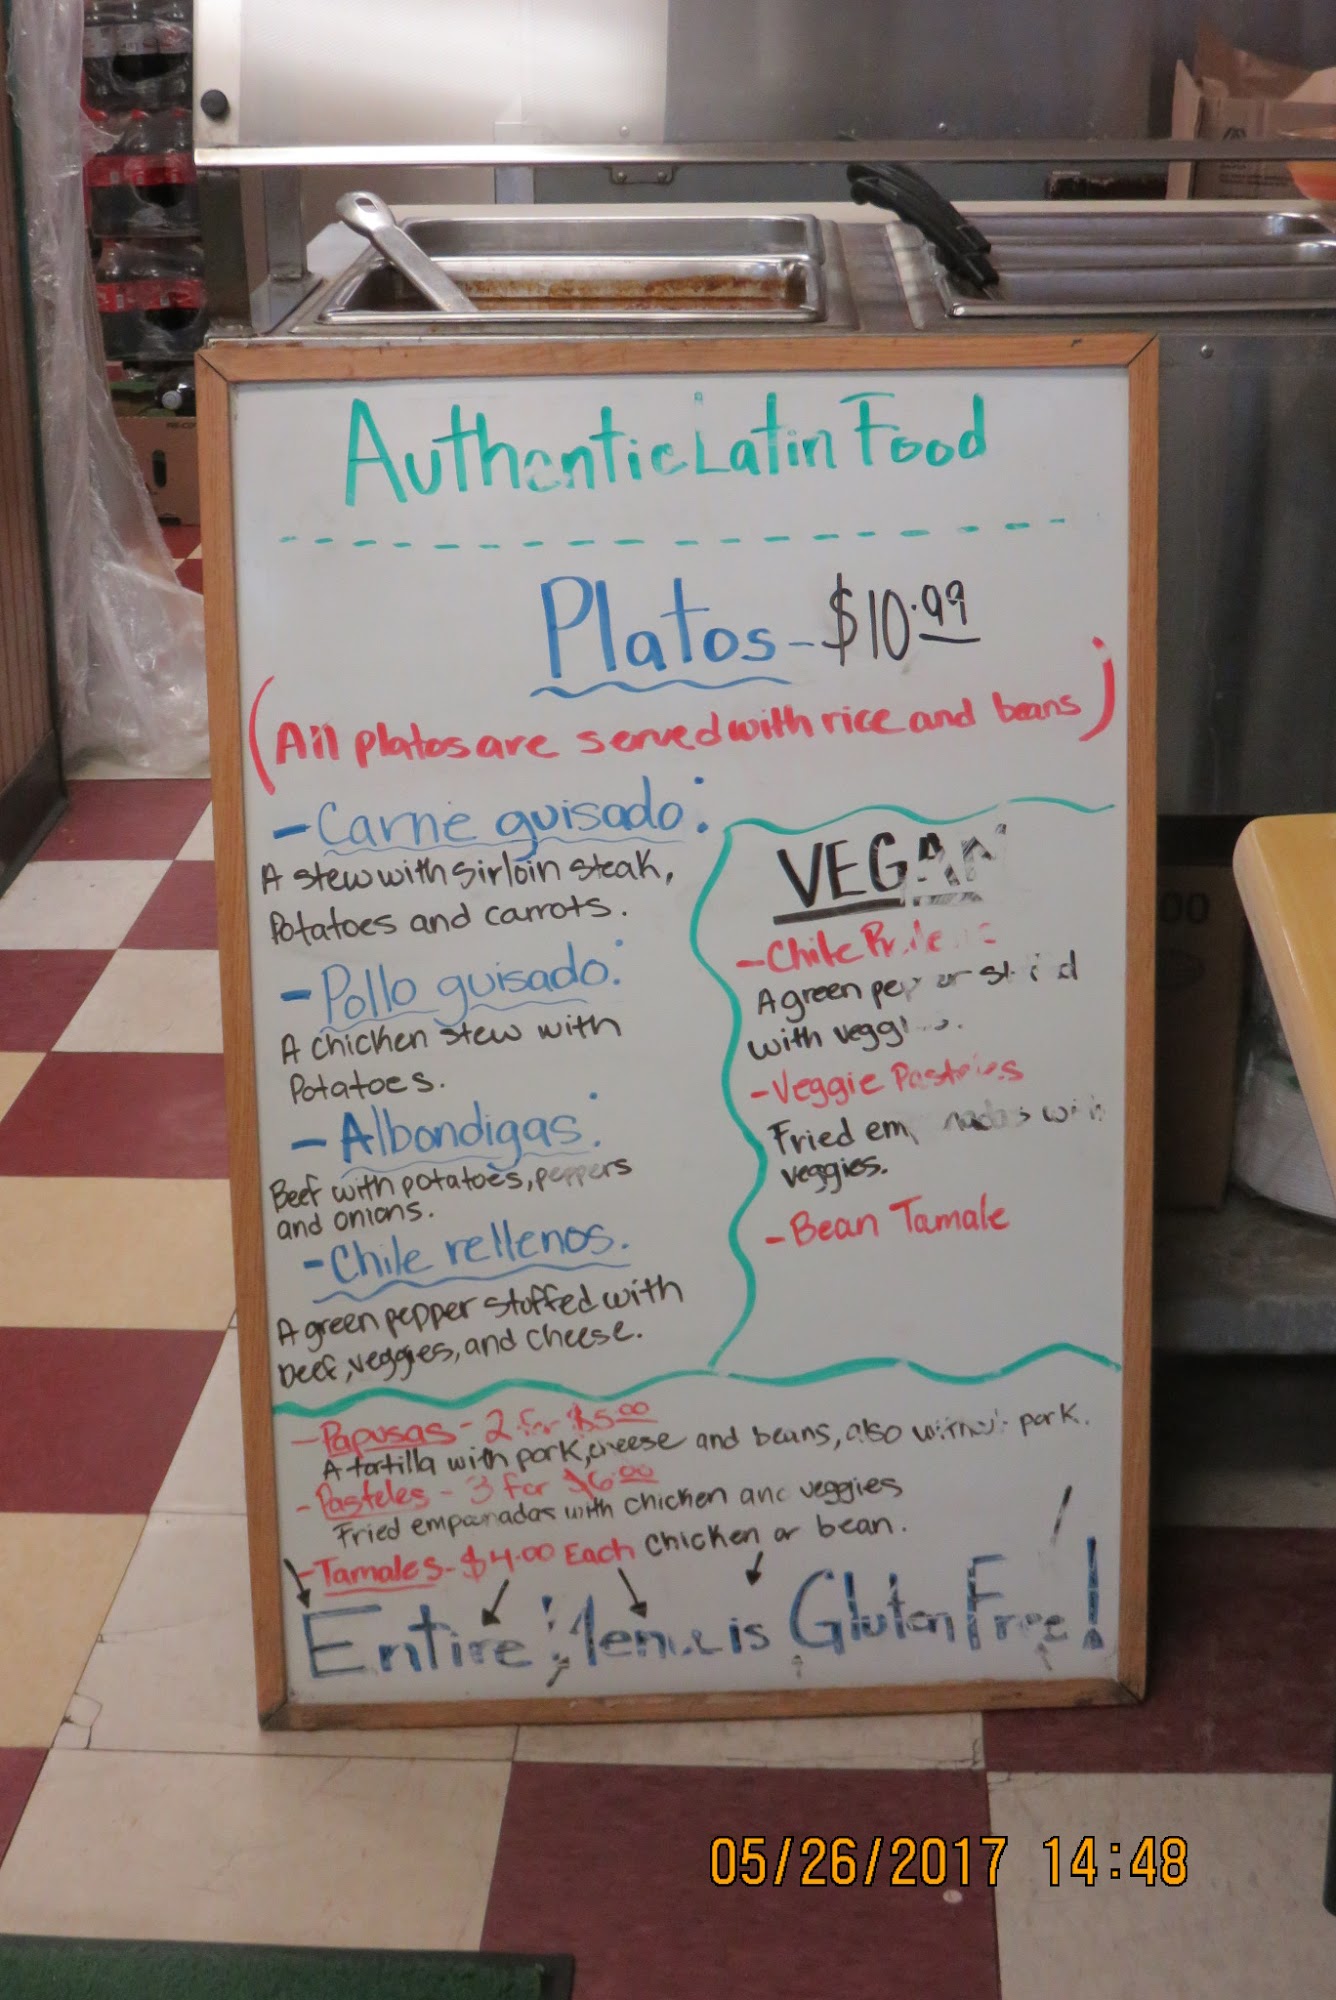 Authentic Latin Food
Platos - $10.99
(All platos are served with rice and beans)
- Carne guisado:
A stew with sirloin steak,
Potatoes and carrots.
- Pollo guisado:
A chicken stew with
Potatoes.
- Albondigas:
Beef with potatoes, peppers
and onions.
- Chile rellenos.
A green pepper stuffed with
beef, veggies, and cheese.
VEGAN
- Chile
A green pepper
with veggies.
- Veggie Pasteles
Fried empanadas with
veggies.
- Bean Tamale
- Papusas - 2 for $5.00
A tortilla with pork, cheese and beans, also without pork.
- Pasteles - 3 for $6.00
Fried empanadas with chicken and veggies
- Tamales - $4.00 Each chicken or bean.
Entire Menu is Gluten Free!
05/26/2017 14:48